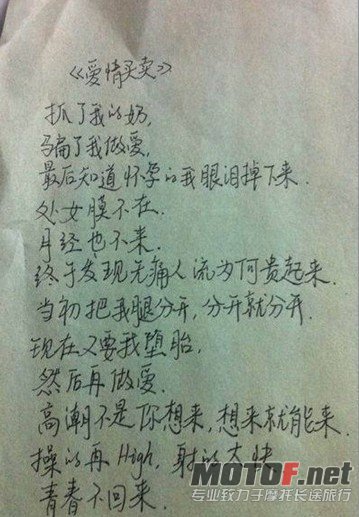 《爱情买卖》
抓了我的奶,
骗了我做爱,
最后知道怀孕的我眼泪掉下来.
处女膜不在.
月经也不来.
终于发现无痛人流为何贵起来.
当初把我腿分开,分开就分开.
现在又要我堕胎,
然后再做爱.
高潮不是你想来,想来就能来.
操的再High,射的太快
青春不回来.
MOTOF.net
专业致力于摩托长途旅行